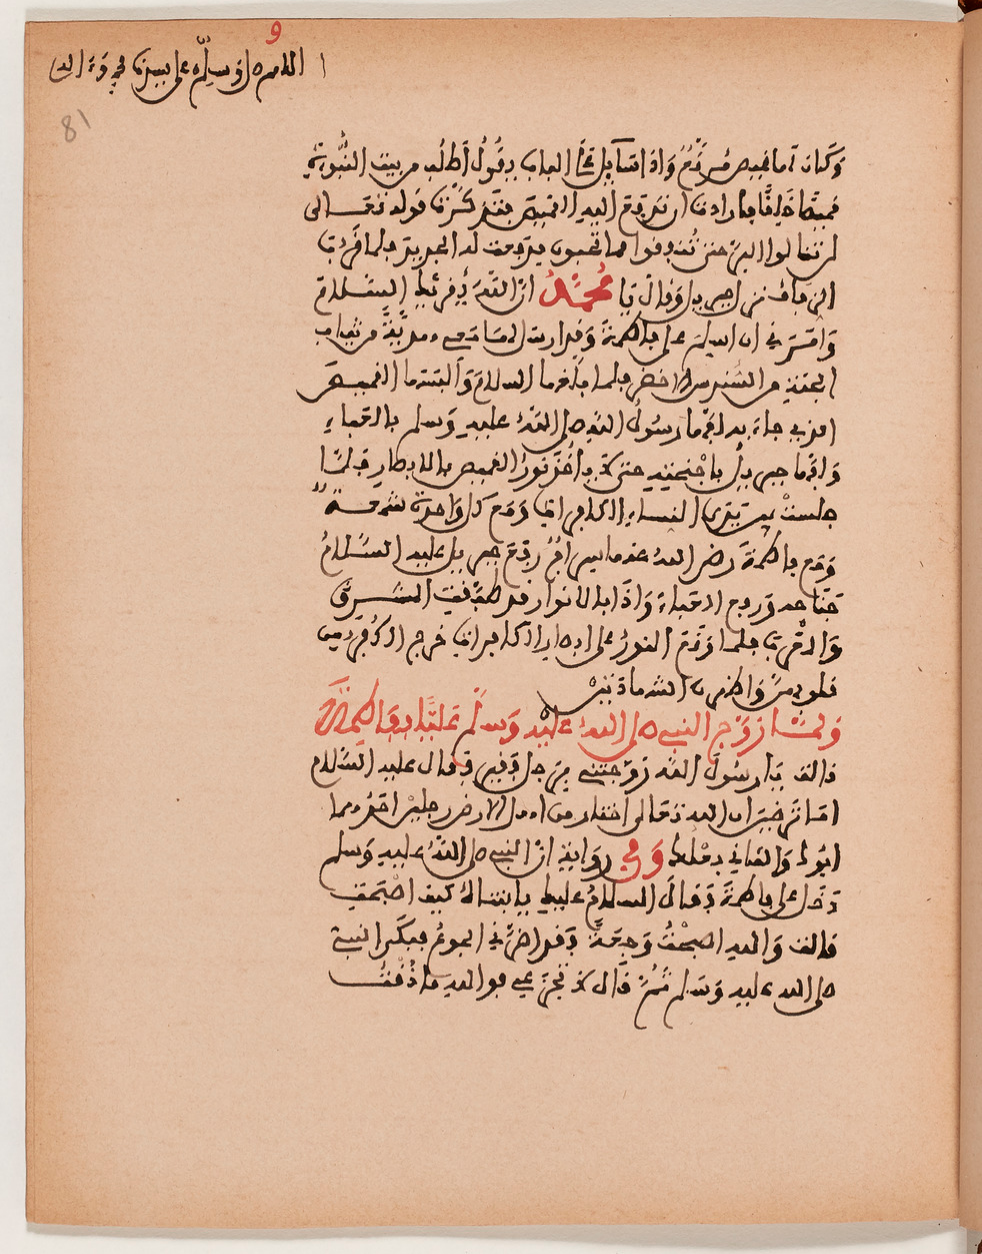 اللهم صل وسلم على سيدنا محمد وءاله
81
وَكان لها قميص مرقّع وَاذا بسايل على الباب يقول أطلب من بيت النُّبوءة
قميصًا خلِقًا فأرادت ان تدفع اليه القميص فتذكّرت قوله تعالى
لن تنالوا البرّ حتى تُنفقوا مما تحبون فدفعت له الجديد فلما قرب
الزفاف نزل جبريل وَقال يَا مُحَمَّدُ انّ اللهَ يُقرئك السّلام
وَامرني ان اسلم على فاطمةَ وَقد ارسل لها معي هديّةً من ثياب
الجنة من السُّندس الاخضر فلما بلّغها السلامَ وَألبسها القميص
الذي جاء به لفّها رسُولُ اللهِ صلى اللهُ عليهِ وَسلم بالعباءِ
وَلفّها جبريل بأجنحته حتى لا يأخُذ نورُ القميص بالابصار فلمّا
جلست بين يدي النساء الكافرات وَمع كل وَاحدة شمعة
وَمع فاطمةَ رضي اللهُ عنها سراج رفع جبريل عليه السّلامُ
جَناحه وَرفع العباءَ وَاذَا بالانوار قد طبّقت المشرق
وَالمغرب فلما وَقع النورُ على ابصار الكافرات خرج الكُفر من
قلوبهنّ وَاظهرن الشهادتين
وَلمّا زوّج النبي صلى اللهُ عليه وَسلّم عَليًّا بفاطمة
قالت يَا رسُولَ الله زوّجتني من رجل فقير فقال عليه السّلام
امَا ترضين ان الله تعالى اختار من اهل الارض رجلين احدهما
ابُوك وَالثاني بعلك وَفي روَاية انّ النبي صلى اللهُ عليه وَسلم
دَخل على فاطمةَ فقالَ السلامُ عليك يا ابنتاهُ كيف اصبحت
قالت وَالله اصبحتُ وَجِعةً وَقد اضرّني الجوع فبكَى النبي
صلى الله عليه وَسَلم ثُمّ قال لا تجزعي فوالله ما ذُقتُ